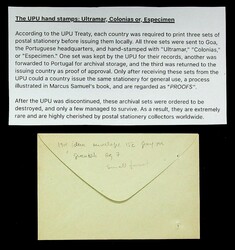 The UPU hand stamps: Ultramar, Colonias or, Especimen
According to the UPU Treaty, each country was required to print three sets of
postal stationery before issuing them locally. All three sets were sent to Goa,
the Portuguese headquarters, and hand-stamped with "Ultramar," "Colonias,"
or "Especimen." One set was kept by the UPU for their records, another was
forwarded to Portugal for archival storage, and the third was returned to the
issuing country as proof of approval. Only after receiving these sets from the
UPU could a country issue the same stationery for general use, a process
illustrated in Marcus Samuel's book, and are regarded as "PROOFS".
After the UPU was discontinued, these archival sets were ordered to be
destroyed, and only a few managed to survive. As a result, they are extremely
rare and are highly cherished by postal stationery collectors worldwide.
envelope